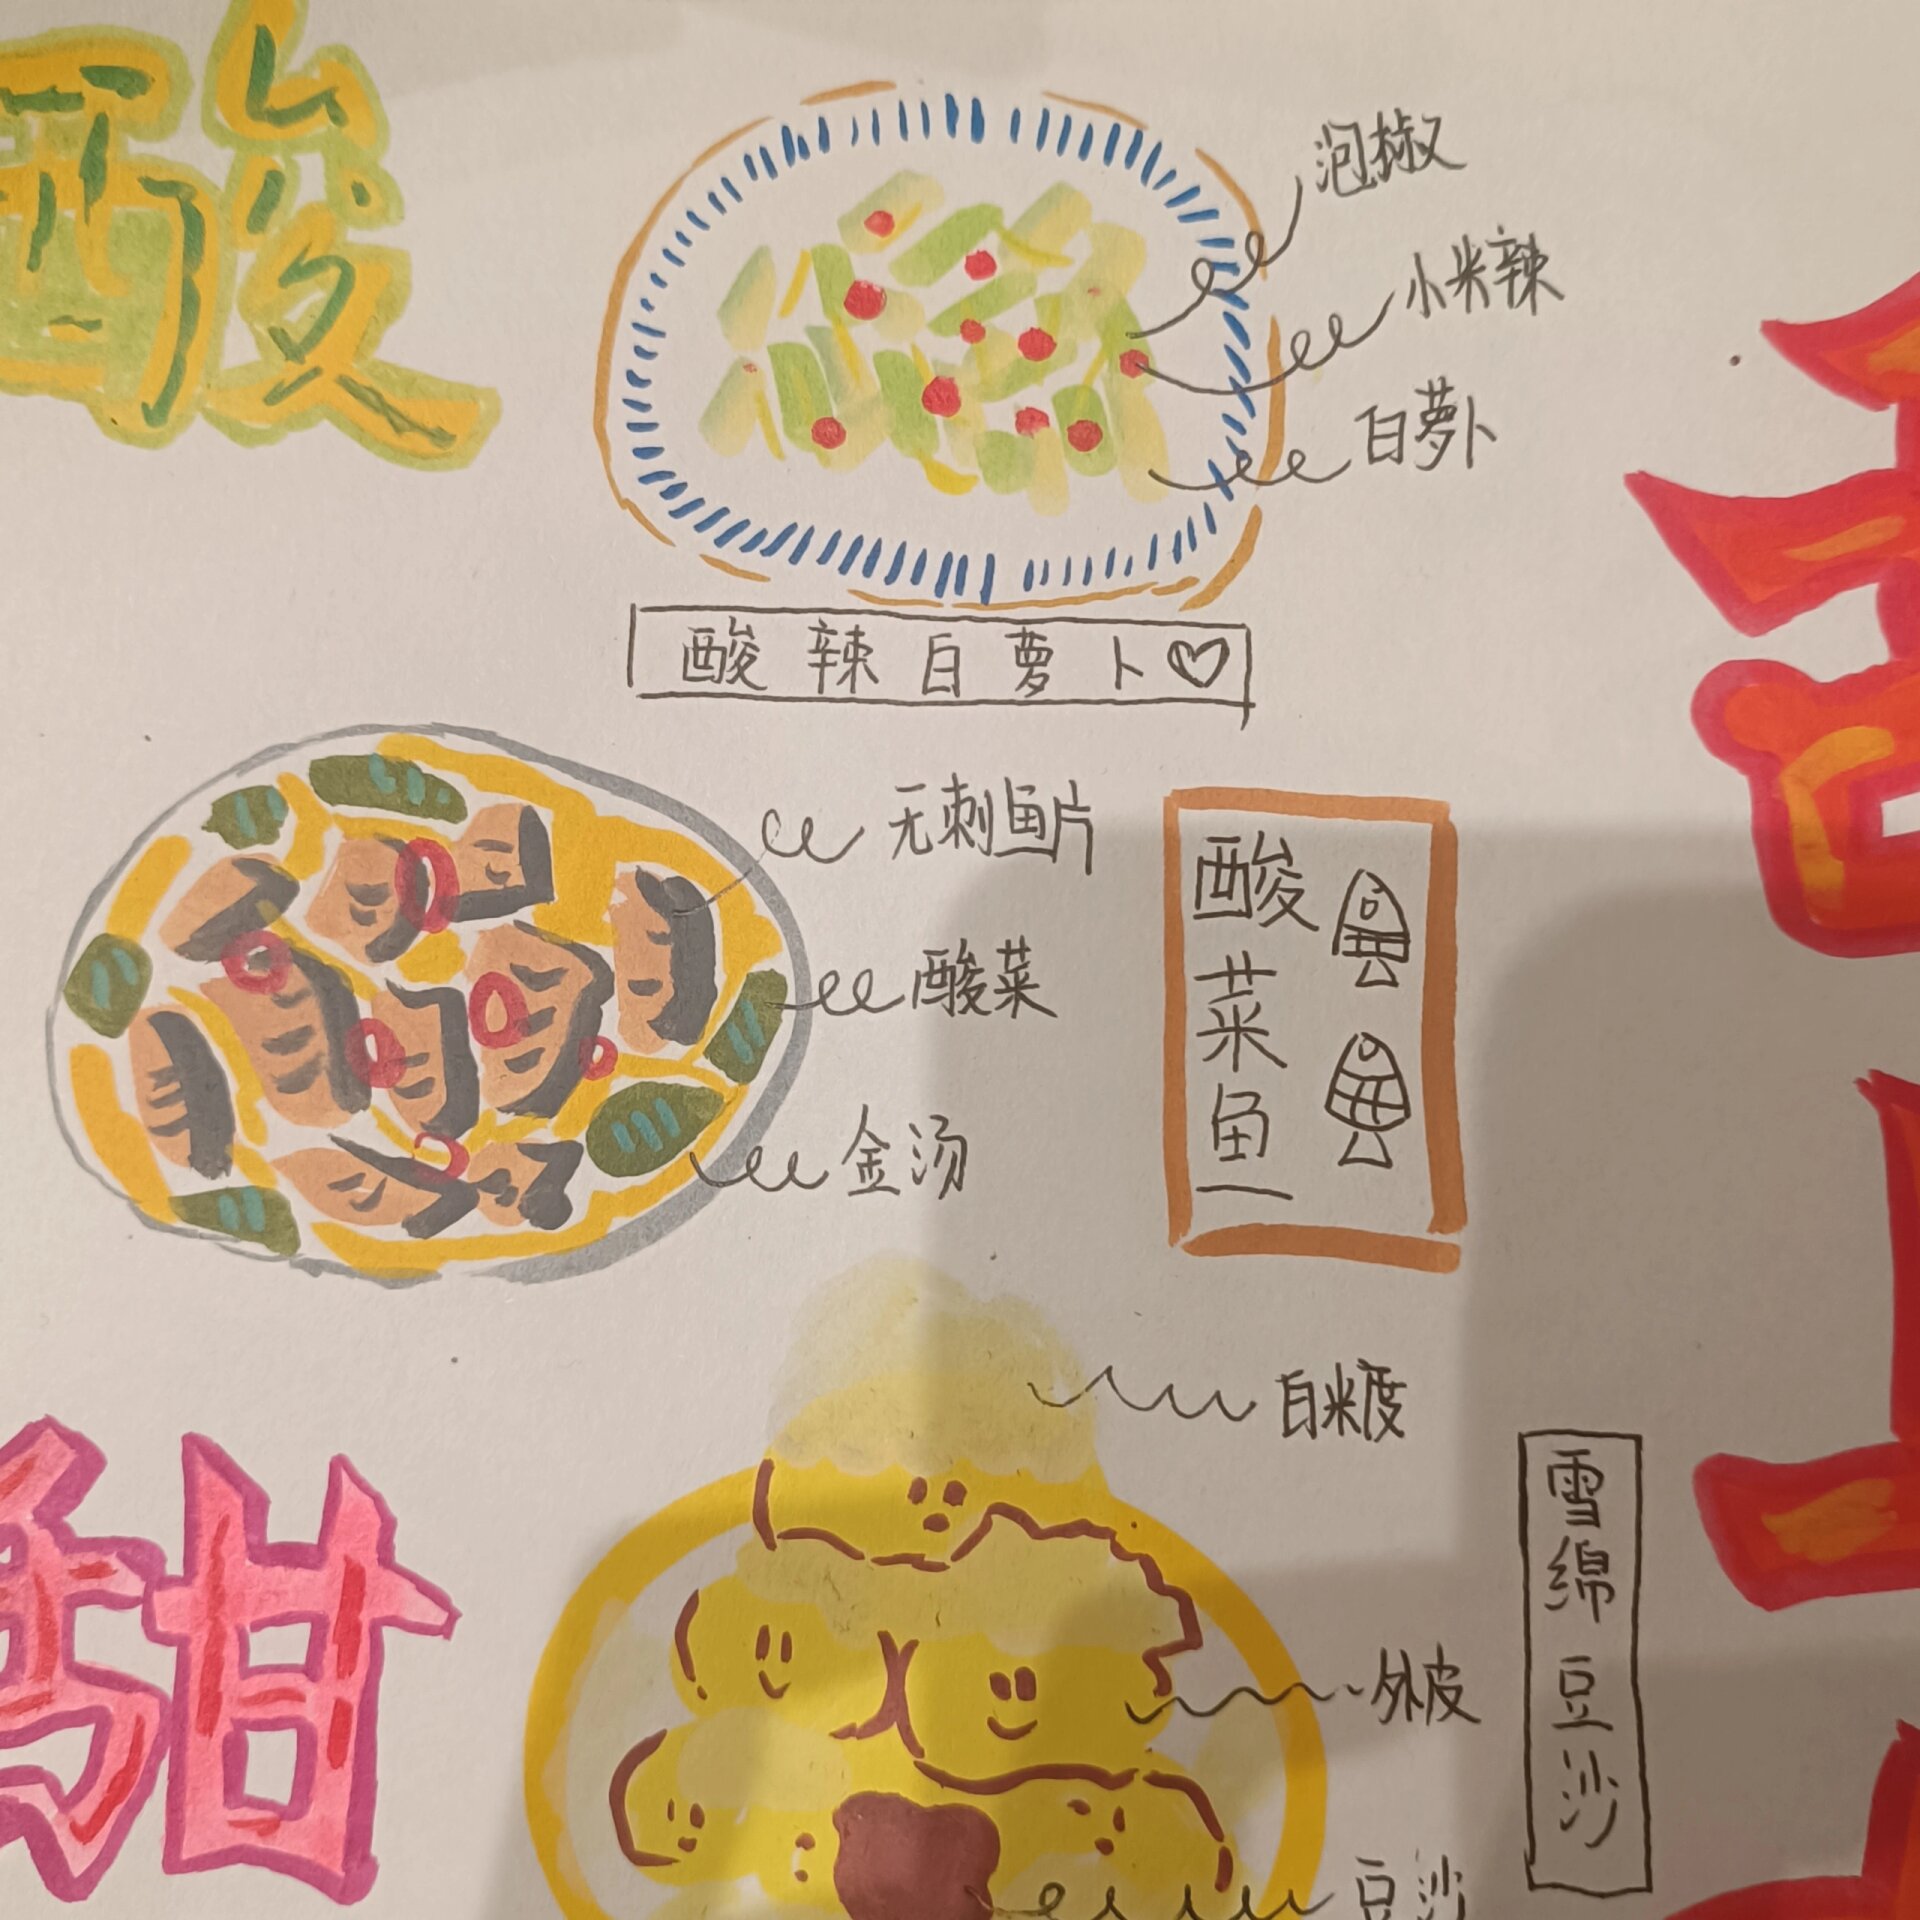 酸
泡椒
小米辣
白萝卜
酸辣白萝卜
无刺鱼片
酸菜
金汤
酸菜鱼
甜
白米度
外皮
豆沙
雪绵豆沙